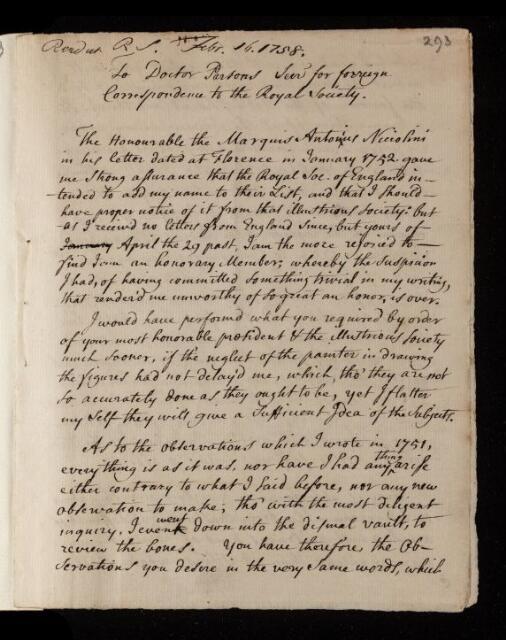 Read at R. S. Febr. 16. 1758.
293
To Doctor Parsons Secr. for foreign
Correspondence to the Royal Society.
The Honourable the Marquis Antonius Niccolini
in his letter dated at Florence in January 1752. gave
me strong assurance that the Royal Soc. of England in-
tended to add my name to their List, and that I should
have proper notice of it from that illustrious society: but
as I receivd no letters from England since, but yours of
January April the 29 past, I am the more rejoiced to
find I am an honorary Member; whereby the suspicion
I had, of having committed something trivial in my writing,
that renderd me unworthy of so great an honor, is over.
I would have performed what you required by order
of your most honorable president & the illustrious Society
much sooner, if the neglect of the painter in drawing
the figures had not delay'd me, which, tho' they are not
so accurately done as they ought to be, yet I flatter
my self they will give a Sufficient Idea of the Subjects.
As to the observations which I wrote in 1751,
every thing is as it was, nor have I had any thing arise
either contrary to what I said before, nor any new
observation to make; tho' with the most diligent
inquiry, I even went down into the dismal vault, to
review the bones. You have therefore, the Ob-
servations you desire in the very same words, which